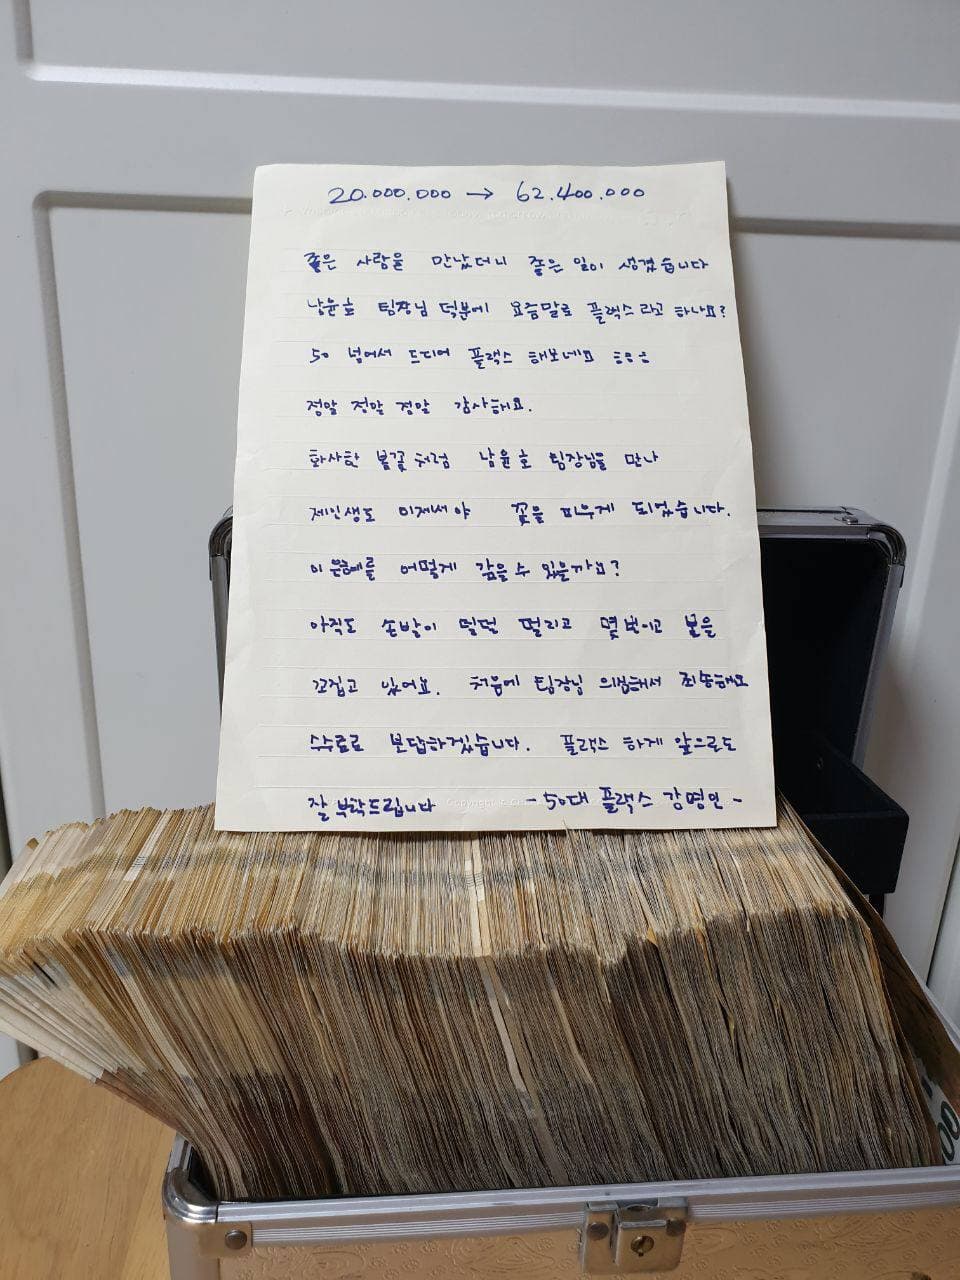 20.000.000 → 62.400.000
좋은 사람을 만났더니 좋은 일이 생겼습니다
남윤호 팀장님 덕분에 요즘말로 플렉스 라고 하나요?
50 넘어서 드디어 플랙스 해보네요 ㅎㅎㅎ
정말 정말 정말 감사해요.
화사한 봄꽃처럼 남윤호 팀장님을 만나
제인생도 이제서야 꽃을 피우게 되었습니다.
이 은혜를 어떻게 갚을수 있을까요?
아직도 손발이 덜덜 떨리고 몇번이고 볼을
꼬집고 있어요. 처음에 팀장님 의심해서 죄송해요
수수료로 보답하겠습니다. 플랙스 하게 앞으로도
잘 부탁드립니다 - 50대 플랙스 강명인 -
00